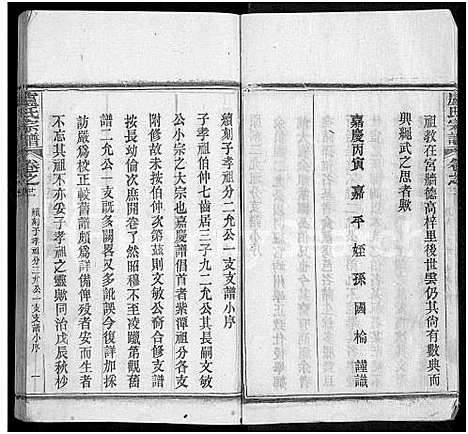 盧氏宗譜 卷之
祖敎在宮牆德高梓里後世雲仍其尙有數典而
興繩武之思者歟
嘉慶丙寅嘉平姪孫國榆謹識
續刻子孝祖分二允公一支支譜小序
子孝祖伯仲七齒居三子九二允公其長嗣文敏
公小宗之大宗也嘉慶譜倡首者紫潭祖合修支譜
附修故未與仲伯次第兹則文敏公裔合修支譜
按長幼倫次庶開卷了然昭穆不至凌躐第觀舊
譜二允公一支旣多闕畧又多訛誤今復詳加採
訪嚴爲校正較舊譜頗爲詳備俾歿者安而生者
不忘其祖亦妥子孝祖之靈歟同治戊辰秋杪
盧氏宗譜 卷之 續刻子孝祖分二允公一支支譜小序 一